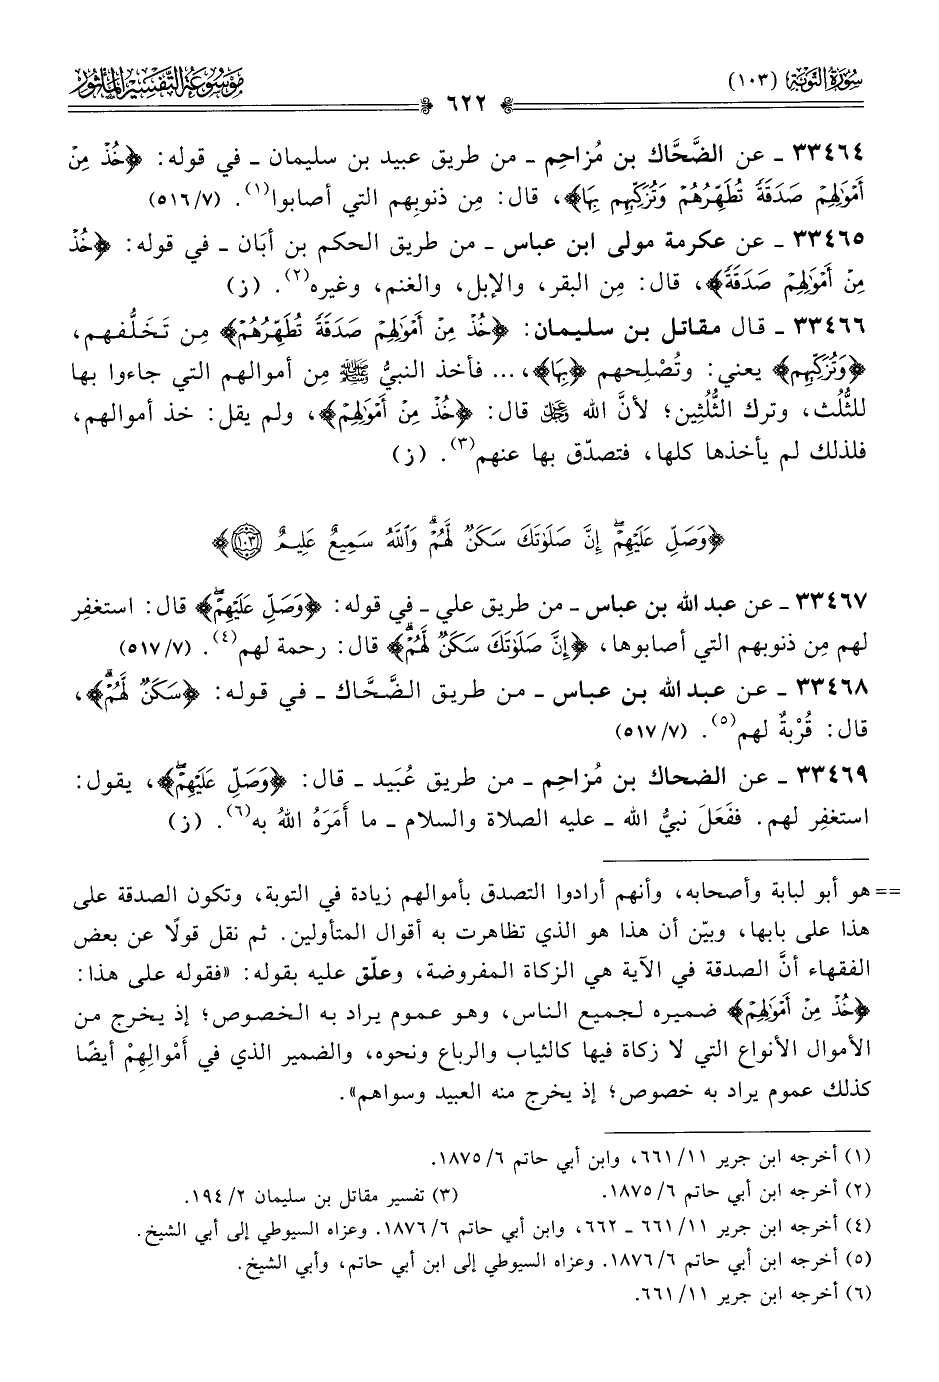 سُورَةُ التَّوْبَةِ (١٠٣)
٦٢٢
مَوْسُوعَةُ التَّفْسِيرِ المَأْثُور
٣٣٤٦٤ ـ عن الضَّحَّاك بن مُزاحِم ـ من طريق عبيد بن سليمان ـ في قوله: ﴿خُذْ مِنْ
أَمْوَٰلِهِمْ صَدَقَةً تُطَهِّرُهُمْ وَتُزَكِّيهِم بِهَا﴾، قال: مِن ذنوبهم التي أصابوا(١). (٥١٦/٧)
٣٣٤٦٥ ـ عن عكرمة مولى ابن عباس ـ من طريق الحكم بن أبَان ـ في قوله: ﴿خُذْ
مِنْ أَمْوَٰلِهِمْ صَدَقَةً﴾، قال: مِن البقر، والإبل، والغنم، وغيره(٢). (ز)
٣٣٤٦٦ ـ قال مقاتل بن سليمان: ﴿خُذْ مِنْ أَمْوَٰلِهِمْ صَدَقَةً تُطَهِّرُهُمْ﴾ مِن تَخَلُّفهم،
﴿وَتُزَكِّيهِم﴾ يعني: وتُصْلِحهم ﴿بِهَا﴾،... فأخذ النبيُّ ﷺ مِن أموالهم التي جاءوا بها
للثُّلث، وترك الثُّلُثين؛ لأنَّ الله ﷻ قال: ﴿خُذْ مِنْ أَمْوَٰلِهِمْ﴾، ولم يقل: خذ أموالهم،
فلذلك لم يأخذها كلها، فتصدّق بها عنهم(٣). (ز)
﴿وَصَلِّ عَلَيْهِمْۖ إِنَّ صَلَوٰتَكَ سَكَنٌ لَّهُمْۗ وَٱللَّهُ سَمِيعٌ عَلِيمٌ ١٠٣﴾
٣٣٤٦٧ ـ عن عبد الله بن عباس ـ من طريق علي ـ في قوله: ﴿وَصَلِّ عَلَيْهِمْۖ﴾ قال: استغفِر
لهم مِن ذنوبهم التي أصابوها، ﴿إِنَّ صَلَوٰتَكَ سَكَنٌ لَّهُمْۗ﴾ قال: رحمة لهم(٤). (٥١٧/٧)
٣٣٤٦٨ ـ عن عبد الله بن عباس ـ من طريق الضَّحَّاك ـ في قوله: ﴿سَكَنٌ لَّهُمْۗ﴾،
قال: قُرْبةٌ لهم(٥). (٥١٧/٧)
٣٣٤٦٩ ـ عن الضحاك بن مُزاحِم ـ من طريق عُبَيد ـ قال: ﴿وَصَلِّ عَلَيْهِمْۖ﴾، يقول:
استغفِر لهم. ففَعَلَ نبيُّ الله ـ عليه الصلاة والسلام ـ ما أَمَرَهُ اللهُ به(٦). (ز)
== هو أبو لبابة وأصحابه، وأنهم أرادوا التصدق بأموالهم زيادة في التوبة، وتكون الصدقة على
هذا على بابها، وبيّن أن هذا هو الذي تظاهرت به أقوال المتأولين. ثم نقل قولًا عن بعض
الفقهاء أنَّ الصدقة في الآية هي الزكاة المفروضة، وعلّق عليه بقوله: «فقوله على هذا:
﴿خُذْ مِنْ أَمْوَٰلِهِمْ﴾ ضميره لجميع الناس، وهو عموم يراد به الخصوص؛ إذ يخرج من
الأموال الأنواع التي لا زكاة فيها كالثياب والرباع ونحوه، والضمير الذي في أَمْوالِهِمْ أيضًا
كذلك عموم يراد به خصوص؛ إذ يخرج منه العبيد وسواهم».
(١) أخرجه ابن جرير ١١/ ٦٦١، وابن أبي حاتم ٦/ ١٨٧٥.
(٢) أخرجه ابن أبي حاتم ٦/ ١٨٧٥. (٣) تفسير مقاتل بن سليمان ٢/ ١٩٤.
(٤) أخرجه ابن جرير ١١/ ٦٦١ ـ ٦٦٢، وابن أبي حاتم ٦/ ١٨٧٦. وعزاه السيوطي إلى أبي الشيخ.
(٥) أخرجه ابن أبي حاتم ٦/ ١٨٧٦. وعزاه السيوطي إلى ابن أبي حاتم، وأبي الشيخ.
(٦) أخرجه ابن جرير ١١/ ٦٦١.